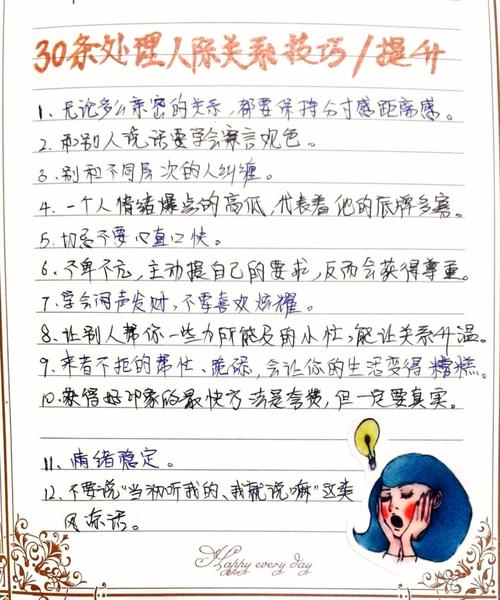 30条处理人际关系技巧/提升
1、无论多么亲密的关系，都要保持分寸感距离感。
2. 和别人说话要学会察言观色。
3. 别和不同层次的人纠缠。
4. 一个人情绪爆点的高低，代表着他的底牌多寡。
5. 切忌不要心直口快。
6. 不卑不亢，主动提自己的要求，反而会获得尊重。
7. 学会闷声发财，不要喜欢炫耀。
8. 让别人帮你一些力所能及的小忙，能让关系升温。
9. 来者不拒的帮忙、施舍，会让你的生活变得糟糕。
10. 获得好印象的最快方法是夸赞，但一定要真实。
11. 情绪稳定。
12. 不要说"当初听我的、我就说嘛"这类
风凉话。
Happy every day